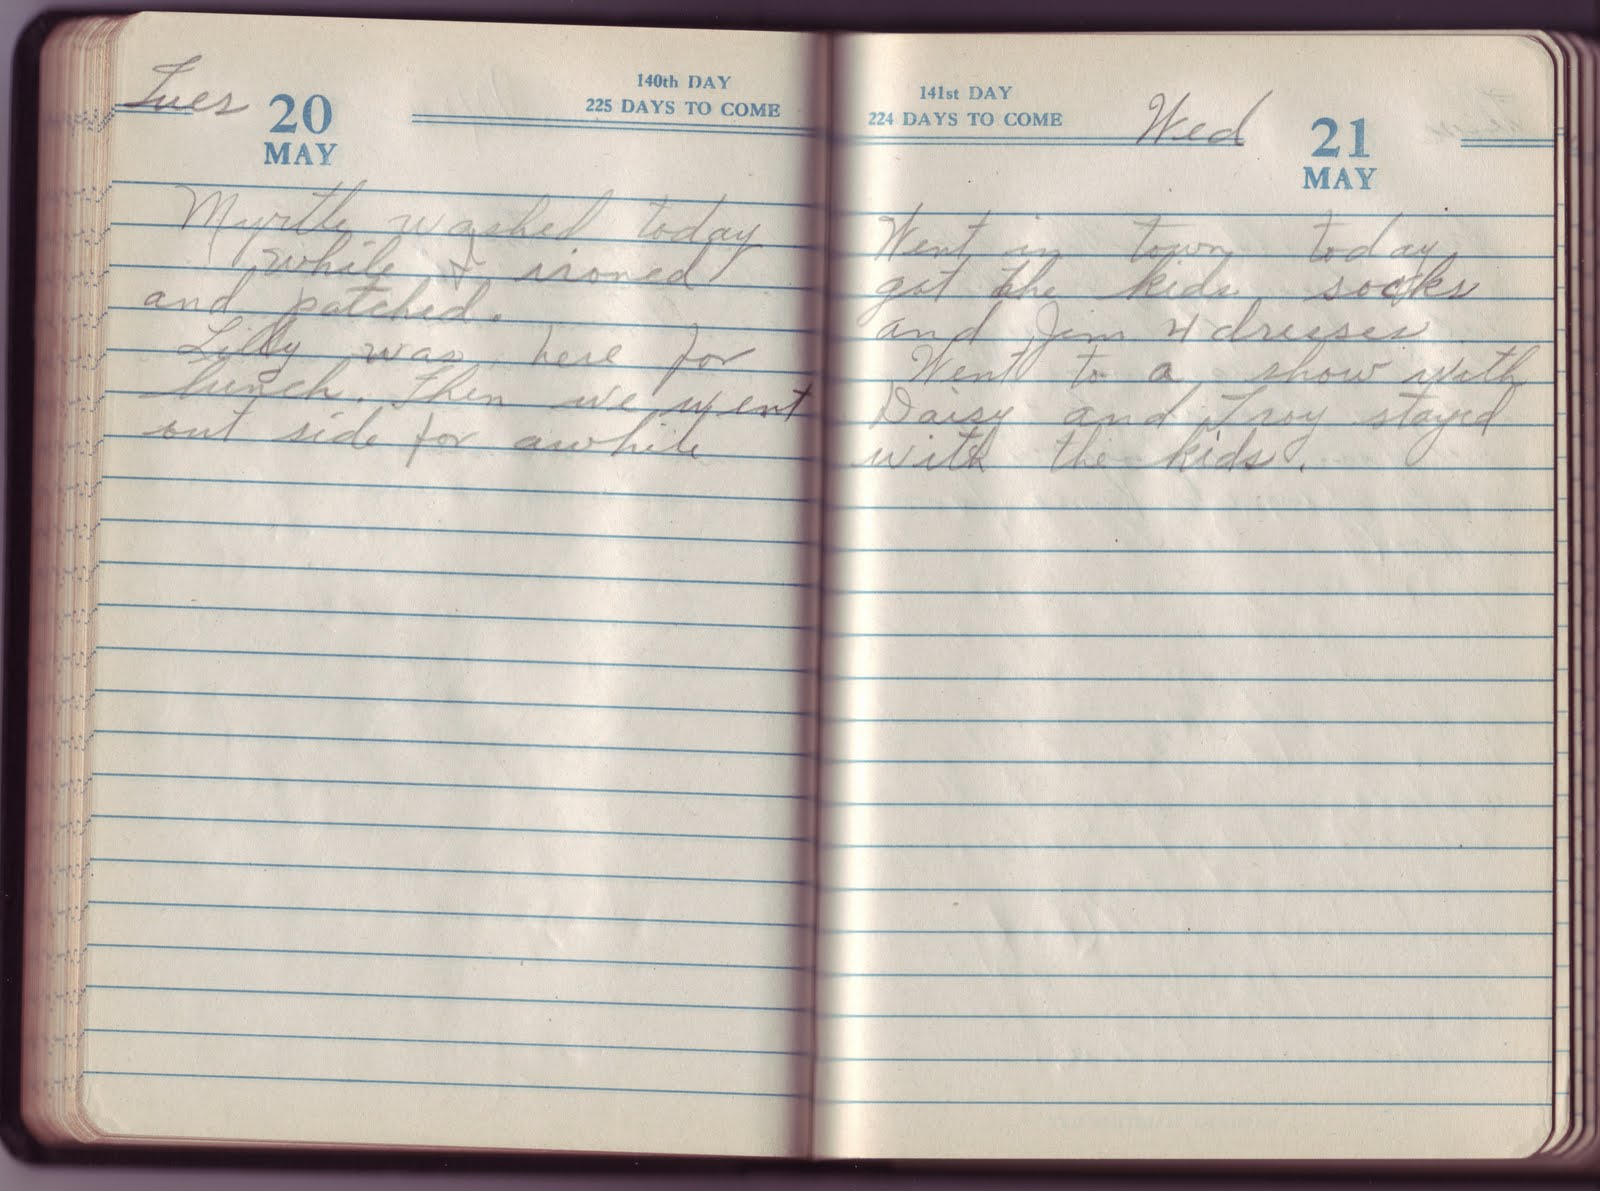 Tues
20
MAY
140th DAY
225 DAYS TO COME
Myrtle washed today
while I ironed
and patched.
Lilly was here for
lunch. Then we went
out side for awhile
141st DAY
224 DAYS TO COME
Wed
21
MAY
Went in town today
got the kids socks
and Jim 4 dresses
Went to a show with
Daisy and Troy stayed
with the kids.